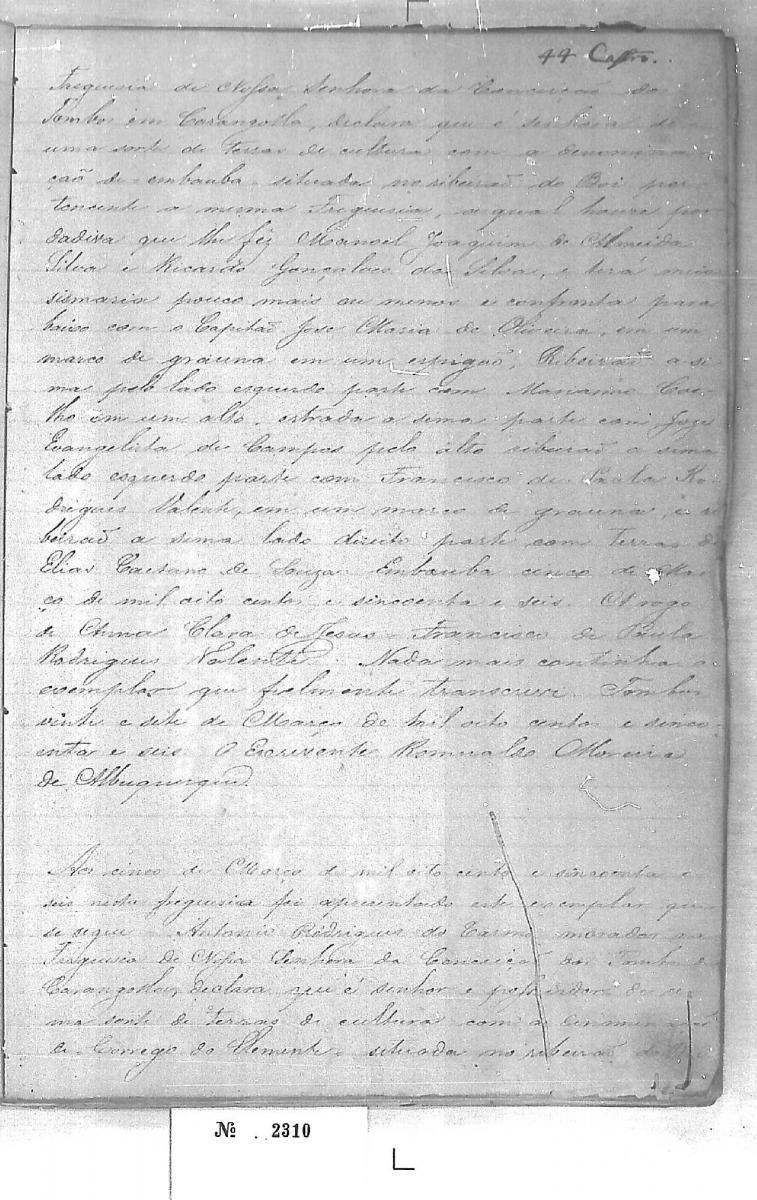 44 Castro.
Freguesia de Nossa Senhora da Conceição do
Tombos em Carangolla, declara que é senhora de
uma sorte de terras de cultura com a denomina
ção de embauba situada no ribeirão do Boi per
tencente a mesma Freguesia, a qual houve por
dadiva que lhe fez Manoel Joaquim de Almeida
Silva e Ricardo Gonçalves da Silva, e terá meia
sismaria pouco mais ou menos e confronta para
baixo com o Capitão Jose Maria de Oliveira, em um
marco de grauna em um espigão, Ribeirão a si
ma pelo lado esquerdo parte com Marianno Coe
lho em um alto, estrada a sima parte com Joze
Evangelista de Campos pelo alto ribeirão a sima
lado esquerdo parte com Francisco de Paula Ro
drigues Valente, em um marco de grauna, e ri
beirão a sima lado direito parte com terras de
Elias Caetano de Souza. Embauba cinco de Mar
ço de mil oito centos e sincoenta e seis. A rogo
de Anna Clara de Jesus - Francisco de Paula
Rodrigues Valente. Nada mais continha o
exemplar que fielmente transcrevi. Tombos
vinte e sete de Março de mil oito centos e sinco
enta e seis. O Escrevente Romualdo Moreira
de Albuquerque.
Aos cinco de Março de mil oito centos e sincoenta e
seis nesta freguesia foi apresentado este exemplar que
se segue Antonio Rodrigues do Carmo morador na
Freguesia de Nossa Senhora da Conceição dos Tombos de
Carangolla, declara que é senhor e possuidor de u
ma sorte de terras de cultura com a denominação
de Corrego do Clemente situada no ribeirão do
Nº 2310